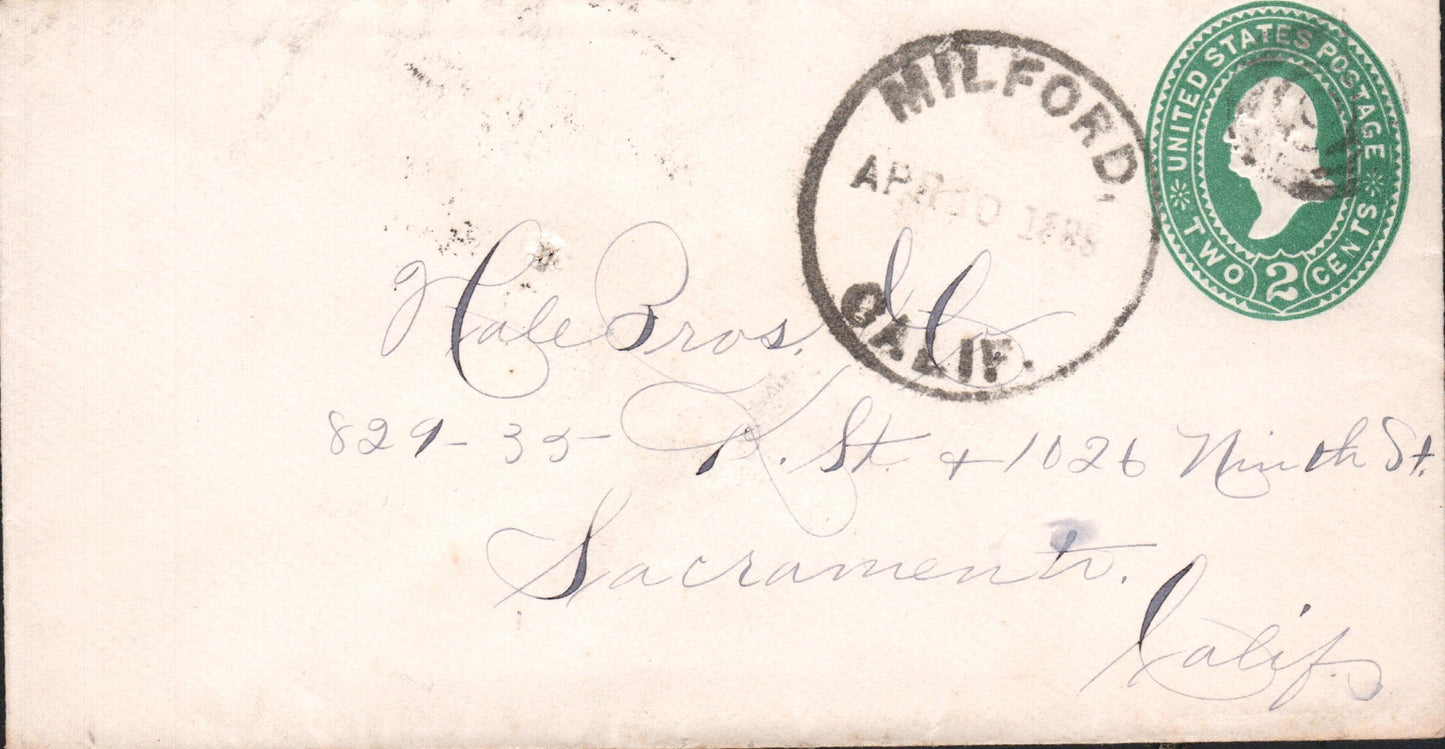 MILFORD,
APR 20 188
CALIF.
UNITED STATES POSTAGE
TWO 2 CENTS
Hale Bros. & Co
829-35- K. St. + 1026 Ninth St.
Sacramento.
Calif.